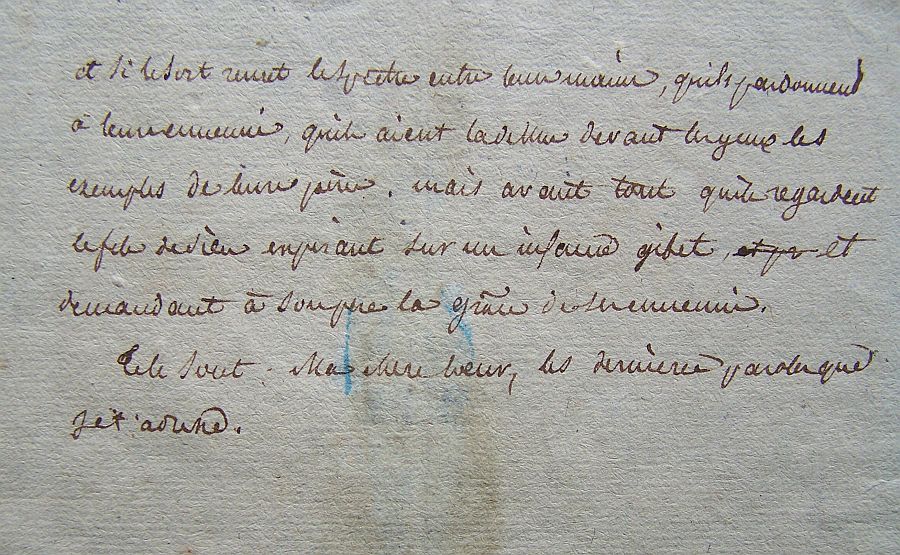 et si le sort remet le sceptre entre leurs mains, qu'ils pardonnent
à leurs ennemis, qu'ils aient là dessus devant les yeux les
exemples de leurs pères. mais avant tout qu'ils regardent
le fils de dieu expirant sur un infame gibet, et pr et
demandant à son pere la grâce de ses ennemis.
Tels sont, Ma chere soeur, les dernieres paroles que
je t'adresse.